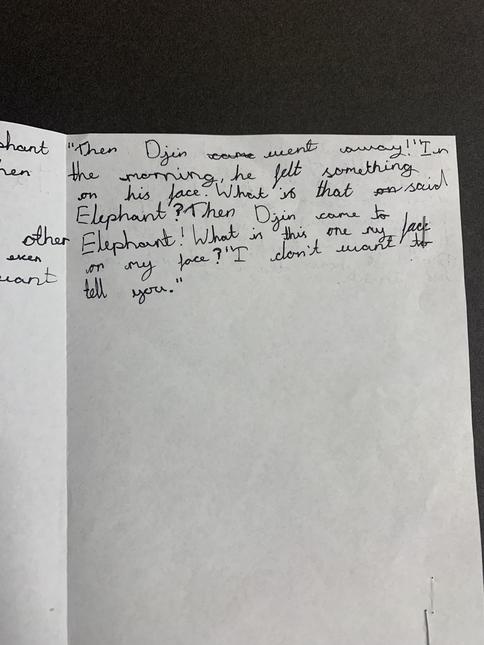 phant
hen
other
even
want
"Then Djin came went away!" In
the morning, he felt something
on his face. What is that on said
Elephant? Then Djin came to
Elephant! What is this one my face
on my face? "I don't want to
tell you."